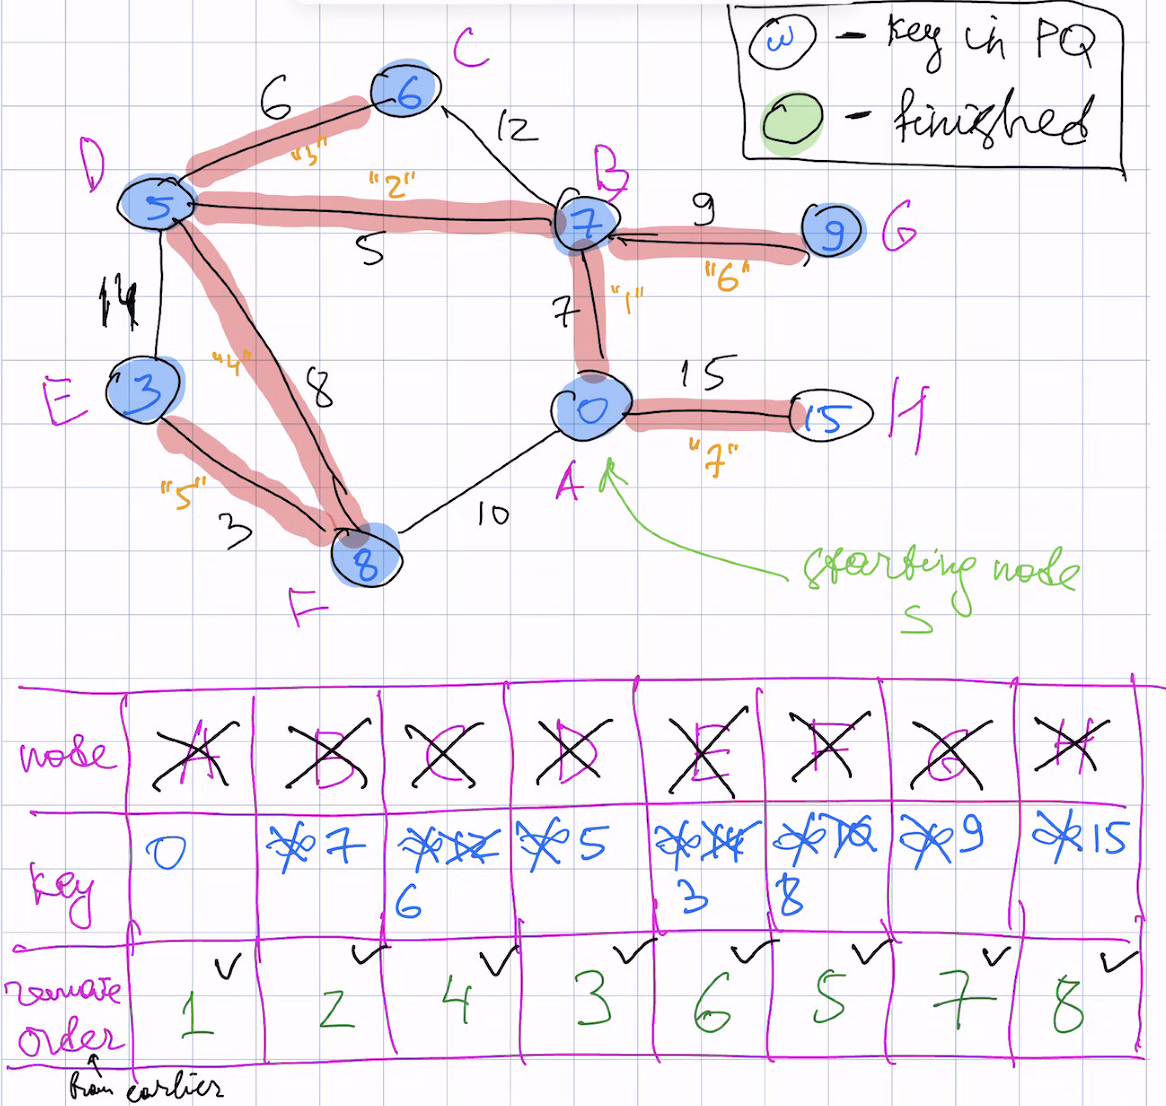 w - key in PQ
- finished
C
6
6
12
"3"
D
B
"2"
9
5
7
9
G
5
"6"
14
7
"1"
15
"4"
8
E
3
0
15
H
"7"
"5"
A
3
10
8
starting node
F
S
node A B C D E F G H
key 0 ∞ 7 ∞ 12 ∞ 5 ∞ 14 ∞ 10 ∞ 9 ∞ 15
6 3 8
✓ ✓ ✓ ✓ ✓ ✓ ✓ ✓
order 1 2 4 3 6 5 7 8
from earlier